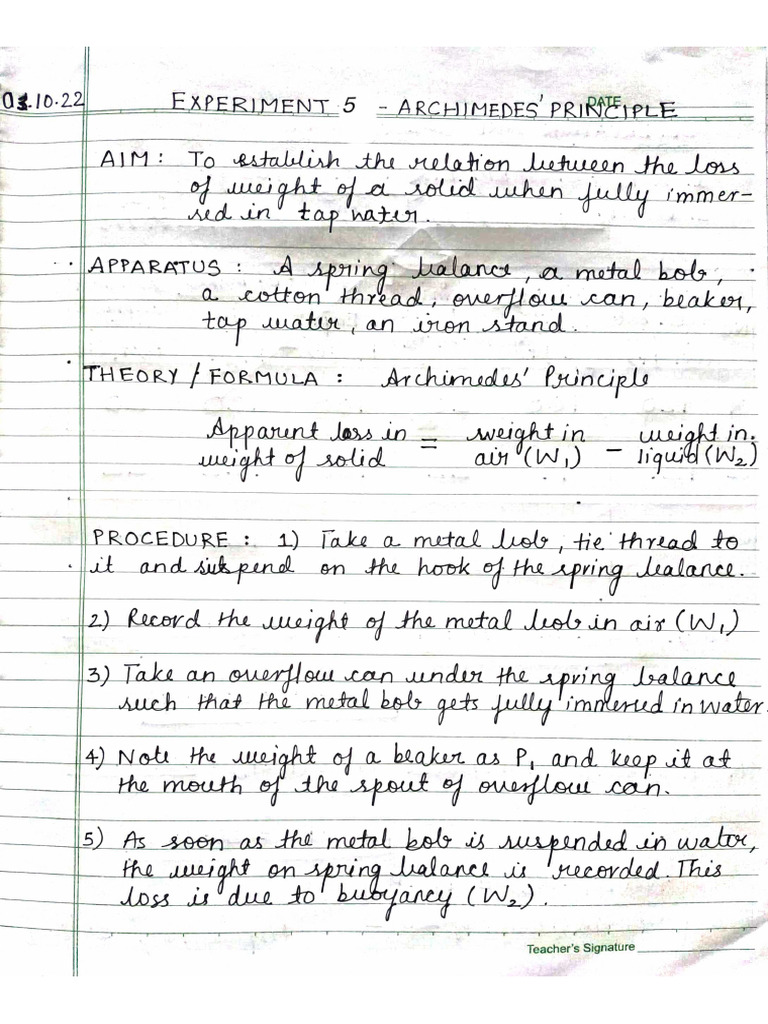 03.10.22 EXPERIMENT 5 - ARCHIMEDES' PRINCIPLE
DATE
AIM : To establish the relation between the loss
of weight of a solid when fully immer-
sed in tap water.
APPARATUS : A spring balance, a metal bob,
a cotton thread, overflow can, beaker,
tap water, an iron stand.
THEORY / FORMULA : Archimedes' Principle
Apparent loss in = weight in - weight in
weight of solid air (W₁) liquid (W₂)
PROCEDURE : 1) Take a metal bob, tie thread to
it and suspend on the hook of the spring balance.
2) Record the weight of the metal bob in air (W₁)
3) Take an overflow can under the spring balance
such that the metal bob gets fully immersed in water.
4) Note the weight of a beaker as P₁ and keep it at
the mouth of the spout of overflow can.
5) As soon as the metal bob is suspended in water,
the weight on spring balance is recorded. This
loss is due to buoyancy (W₂).
Teacher's Signature